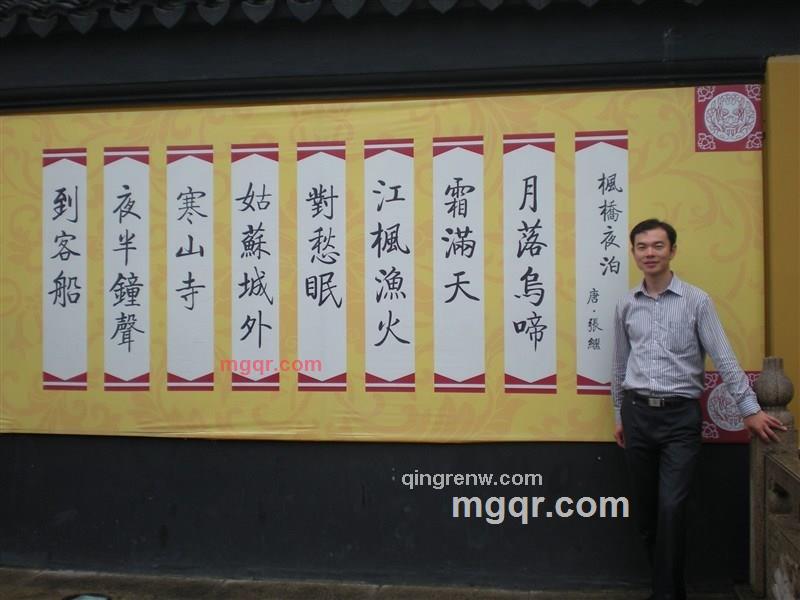 楓橋夜泊
唐·張繼
月落烏啼
霜滿天
江楓漁火
對愁眠
姑蘇城外
寒山寺
夜半鐘聲
到客船
mgqr.com
qingrenw.com
mgqr.com